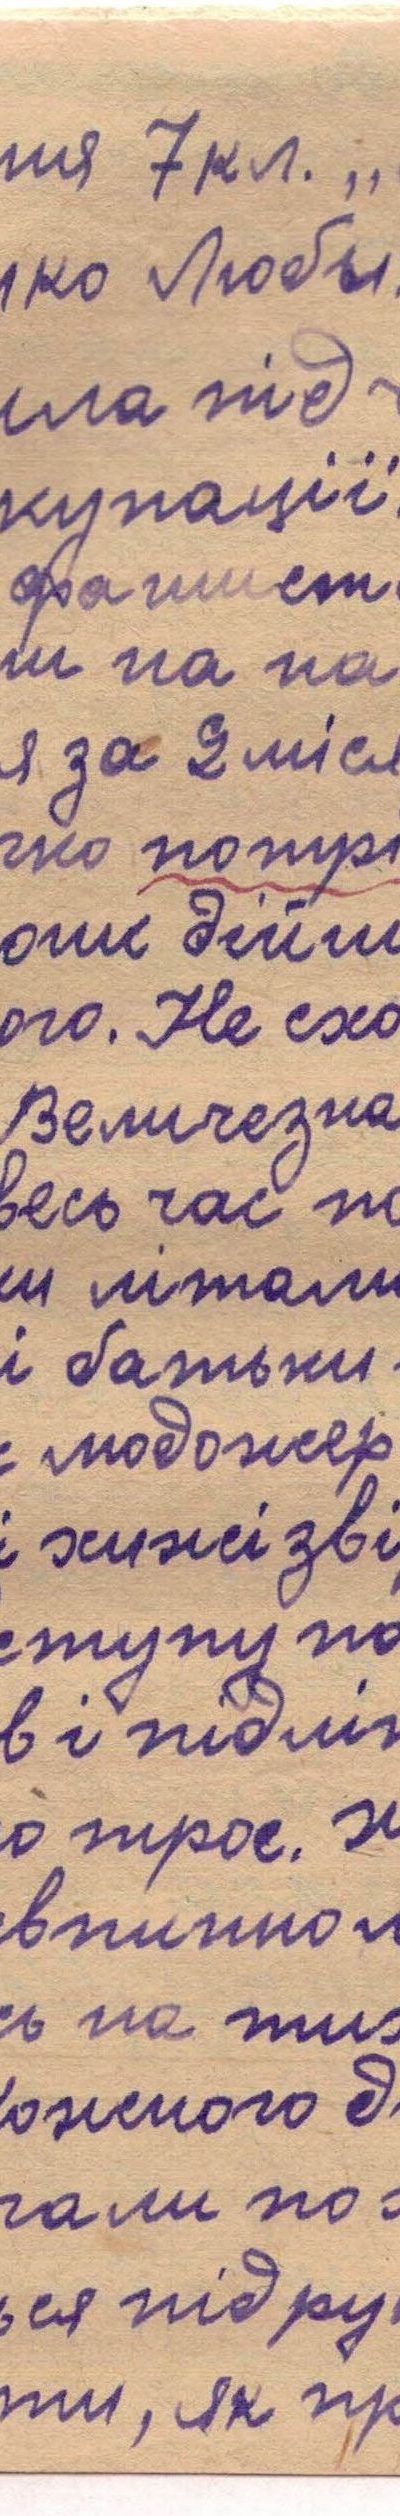 ня 7 кл. „
нко Люби.
ила під
купації.
фашист
ли на на
я за 2 міся
чко потрі
ошк дійш
ого. Не схо
Величезна
весь час по
ки літали
і батьки
людожер
і хижі зві
ступу по
в і підліт
о троє. Ж
евпинном
сь на тиж
кожного д
гали по з
ься під ру
ти, як пр